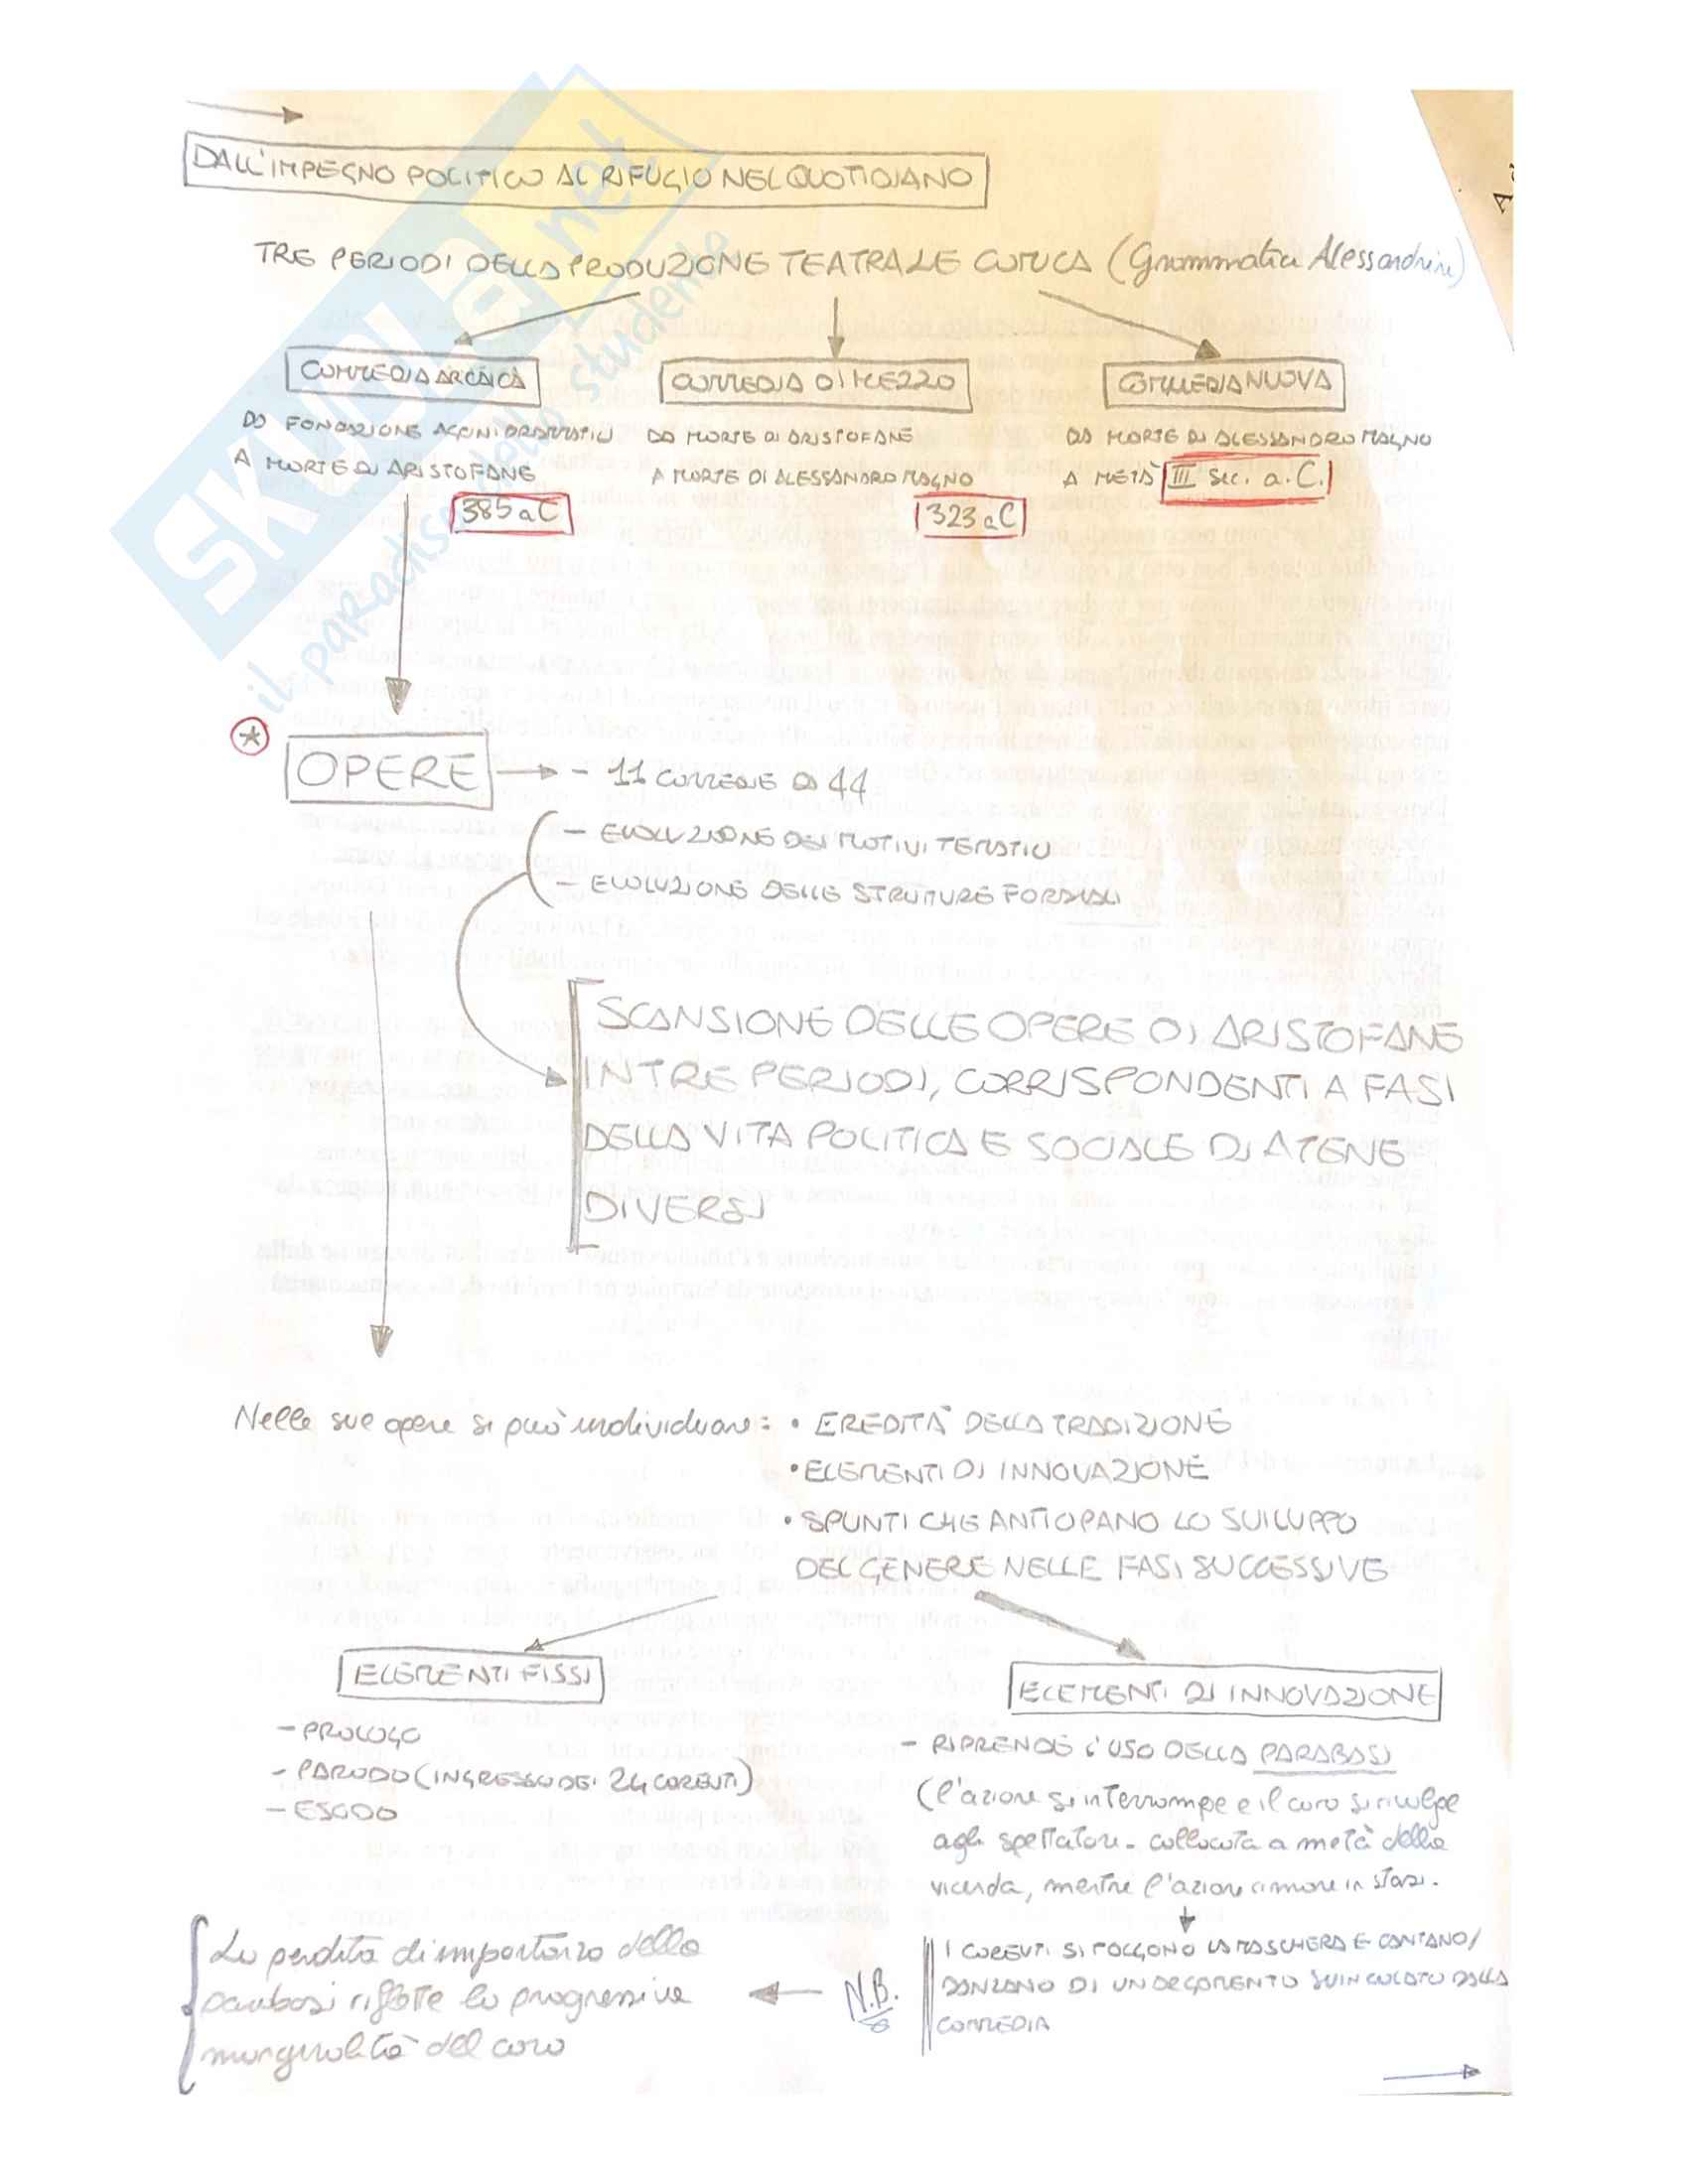 DALL'IMPEGNO POLITICO AL RIFUGIO NEL QUOTIDIANO
TRE PERIODI DELLA PRODUZIONE TEATRALE COMICA (Grammatici Alessandrini)
COMMEDIA ARCAICA
COMMEDIA DI MEZZO
COMMEDIA NUOVA
DA FONDAZIONE AGONI DRAMMATICI
A MORTE DI ARISTOFANE
385 a C
DA MORTE DI ARISTOFANE
A MORTE DI ALESSANDRO MAGNO
323 a C
DA MORTE DI ALESSANDRO MAGNO
A METÀ III sec. a.C.
OPERE
- 11 COMMEDIE DA 44
- EVOLUZIONE DEI MOTIVI TEMATICI
- EVOLUZIONE DELLE STRUTTURE FORMALI
SCANSIONE DELLE OPERE DI ARISTOFANE
IN TRE PERIODI, CORRISPONDENTI A FASI
DELLA VITA POLITICA E SOCIALE DI ATENE
DIVERSI
Nelle sue opere si può individuare:
• EREDITÀ DELLA TRADIZIONE
• ELEMENTI DI INNOVAZIONE
• SPUNTI CHE ANTICIPANO LO SVILUPPO
DEL GENERE NELLE FASI SUCCESSIVE
ELEMENTI FISSI
- PROLOGO
- PARODO (INGRESSO DEI 24 COREUTI)
- ESODO
ELEMENTI DI INNOVAZIONE
- RIPRENDE L'USO DELLA PARABASI
(l'azione si interrompe e il coro si rivolge
agli spettatori - collocata a metà della
vicenda, mentre l'azione rimane in stasi.
I COREUTI SI TOLGONO LA MASCHERA E CANTANO/
DANZANO DI UN ARGOMENTO SVINCOLATO DALLA
COMMEDIA
N.B.
La perdita di importanza della
parabasi riflette la progressiva
marginalità del coro
SKUOLA.net
il paradiso dello studente